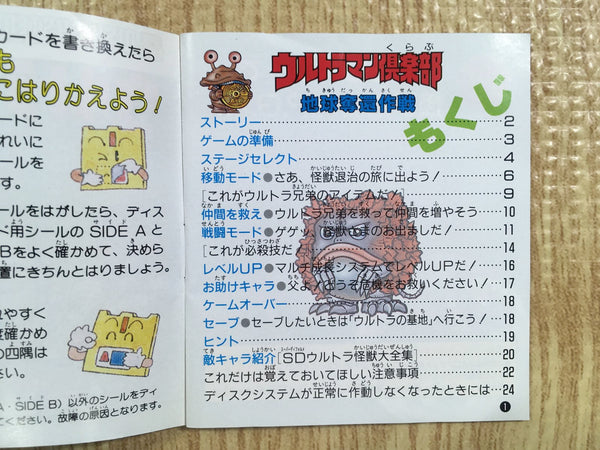 カードを書き換えたら
も
こはりかえよう！
ードに
れいに
ールを
す。
ールをはがしたら、ディス
ド用シールの SIDE A と
Bをよく確かめて、決めら
置にきちんとはりましょう。
れやすく
度確かめ
の四隅は
さい。
A・SIDE B）以外のシールをディ
てください。故障の原因となります。
ウルトラマン倶楽部
地球奪還作戦
もくじ
ストーリー 2
ゲームの準備 3
ステージセレクト 4
移動モード●さあ、怪獣退治の旅に出よう！ 6
[これがウルトラ兄弟のアイテムだ！] 9
仲間を救え●ウルトラ兄弟を救って仲間を増やそう 10
戦闘モード●ゲゲッ、怪獣さまのお出ましだ！ 11
[これが必殺技だ] 14
レベルUP●マルチ成長システムでレベルUPだ！ 16
お助けキャラ●父よ、どうぞ危機をお救いください！ 17
ゲームオーバー 18
セーブ●セーブしたいときは「ウルトラの基地」へ行こう！ 18
ヒント 19
敵キャラ紹介[SDウルトラ怪獣大全集] 20
これだけは覚えておいてほしい注意事項 22
ディスクシステムが正常に作動しなくなったときには 24
1